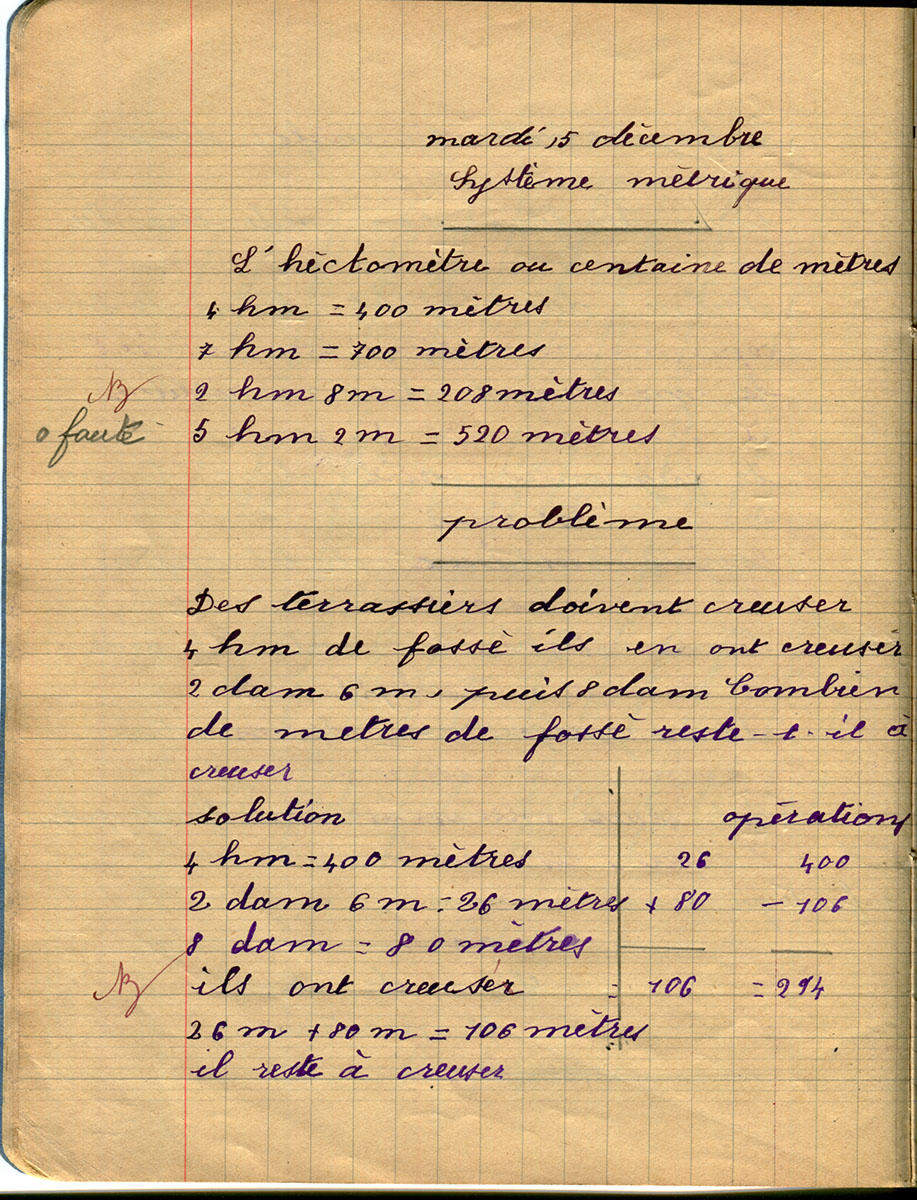 mardi 15 décembre
Système mètrique
L'hèctomètre ou centaine de mètres
4 hm = 400 mètres
7 hm = 700 mètres
B
2 hm 8m = 208 mètres
0 faute
5 hm 2m = 520 mètres
problème
Des terrassiers doivent creuser
4 hm de fossè ils en ont creuser
2 dam 6 m, puis 8 dam Combien
de metres de fossè reste-t-il à
creuser
solution
opérations
4 hm = 400 mètres
26 400
2 dam 6 m = 26 mètres
+ 80 - 106
8 dam = 80 mètres
B
ils ont creuser
= 106 = 294
26 m + 80 m = 106 mètres
il reste à creuser